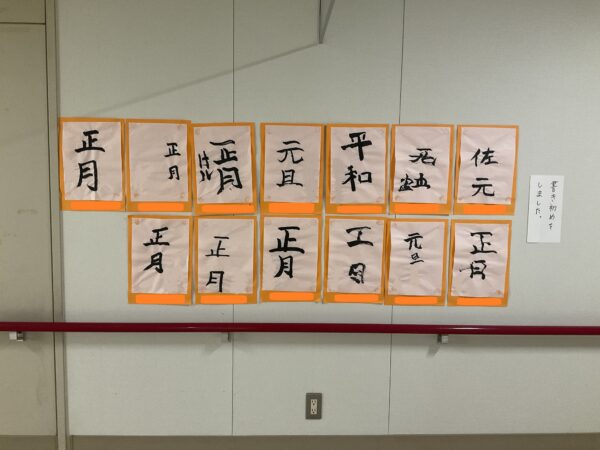 書き初めを
しました。
佐元
平和
元旦
正月
正月
正月
正月
元旦
正月
正月
正月